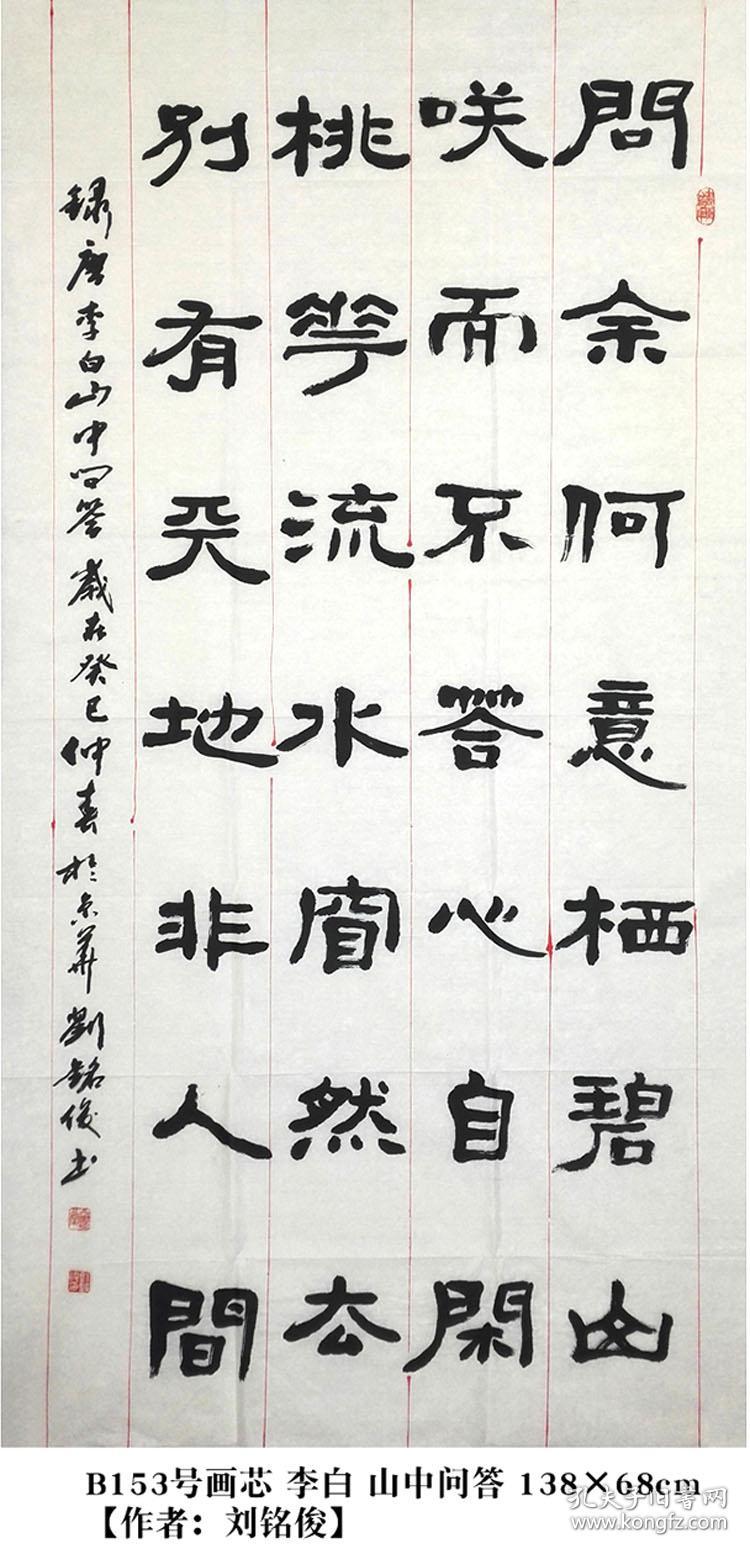 問余何意栖碧山
咲而不答心自閑
桃花流水窅然去
別有天地非人間
録唐李白山中问答 歳在癸巳仲春於京華 劉銘俊书
B153号画芯 李白 山中问答 138×68cm
【作者：刘铭俊】
孔夫子旧书网
www.kongfz.com